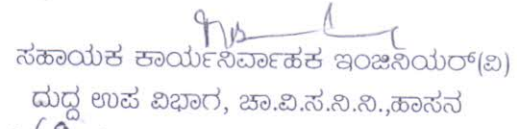 ಸಹಾಯಕ ಕಾರ್ಯನಿರ್ವಾಹಕ ಇಂಜಿನಿಯರ್(ವಿ)
ದುದ್ದ ಉಪ ವಿಭಾಗ, ಚಾ.ವಿ.ಸ.ನಿ.ನಿ.,ಹಾಸನ